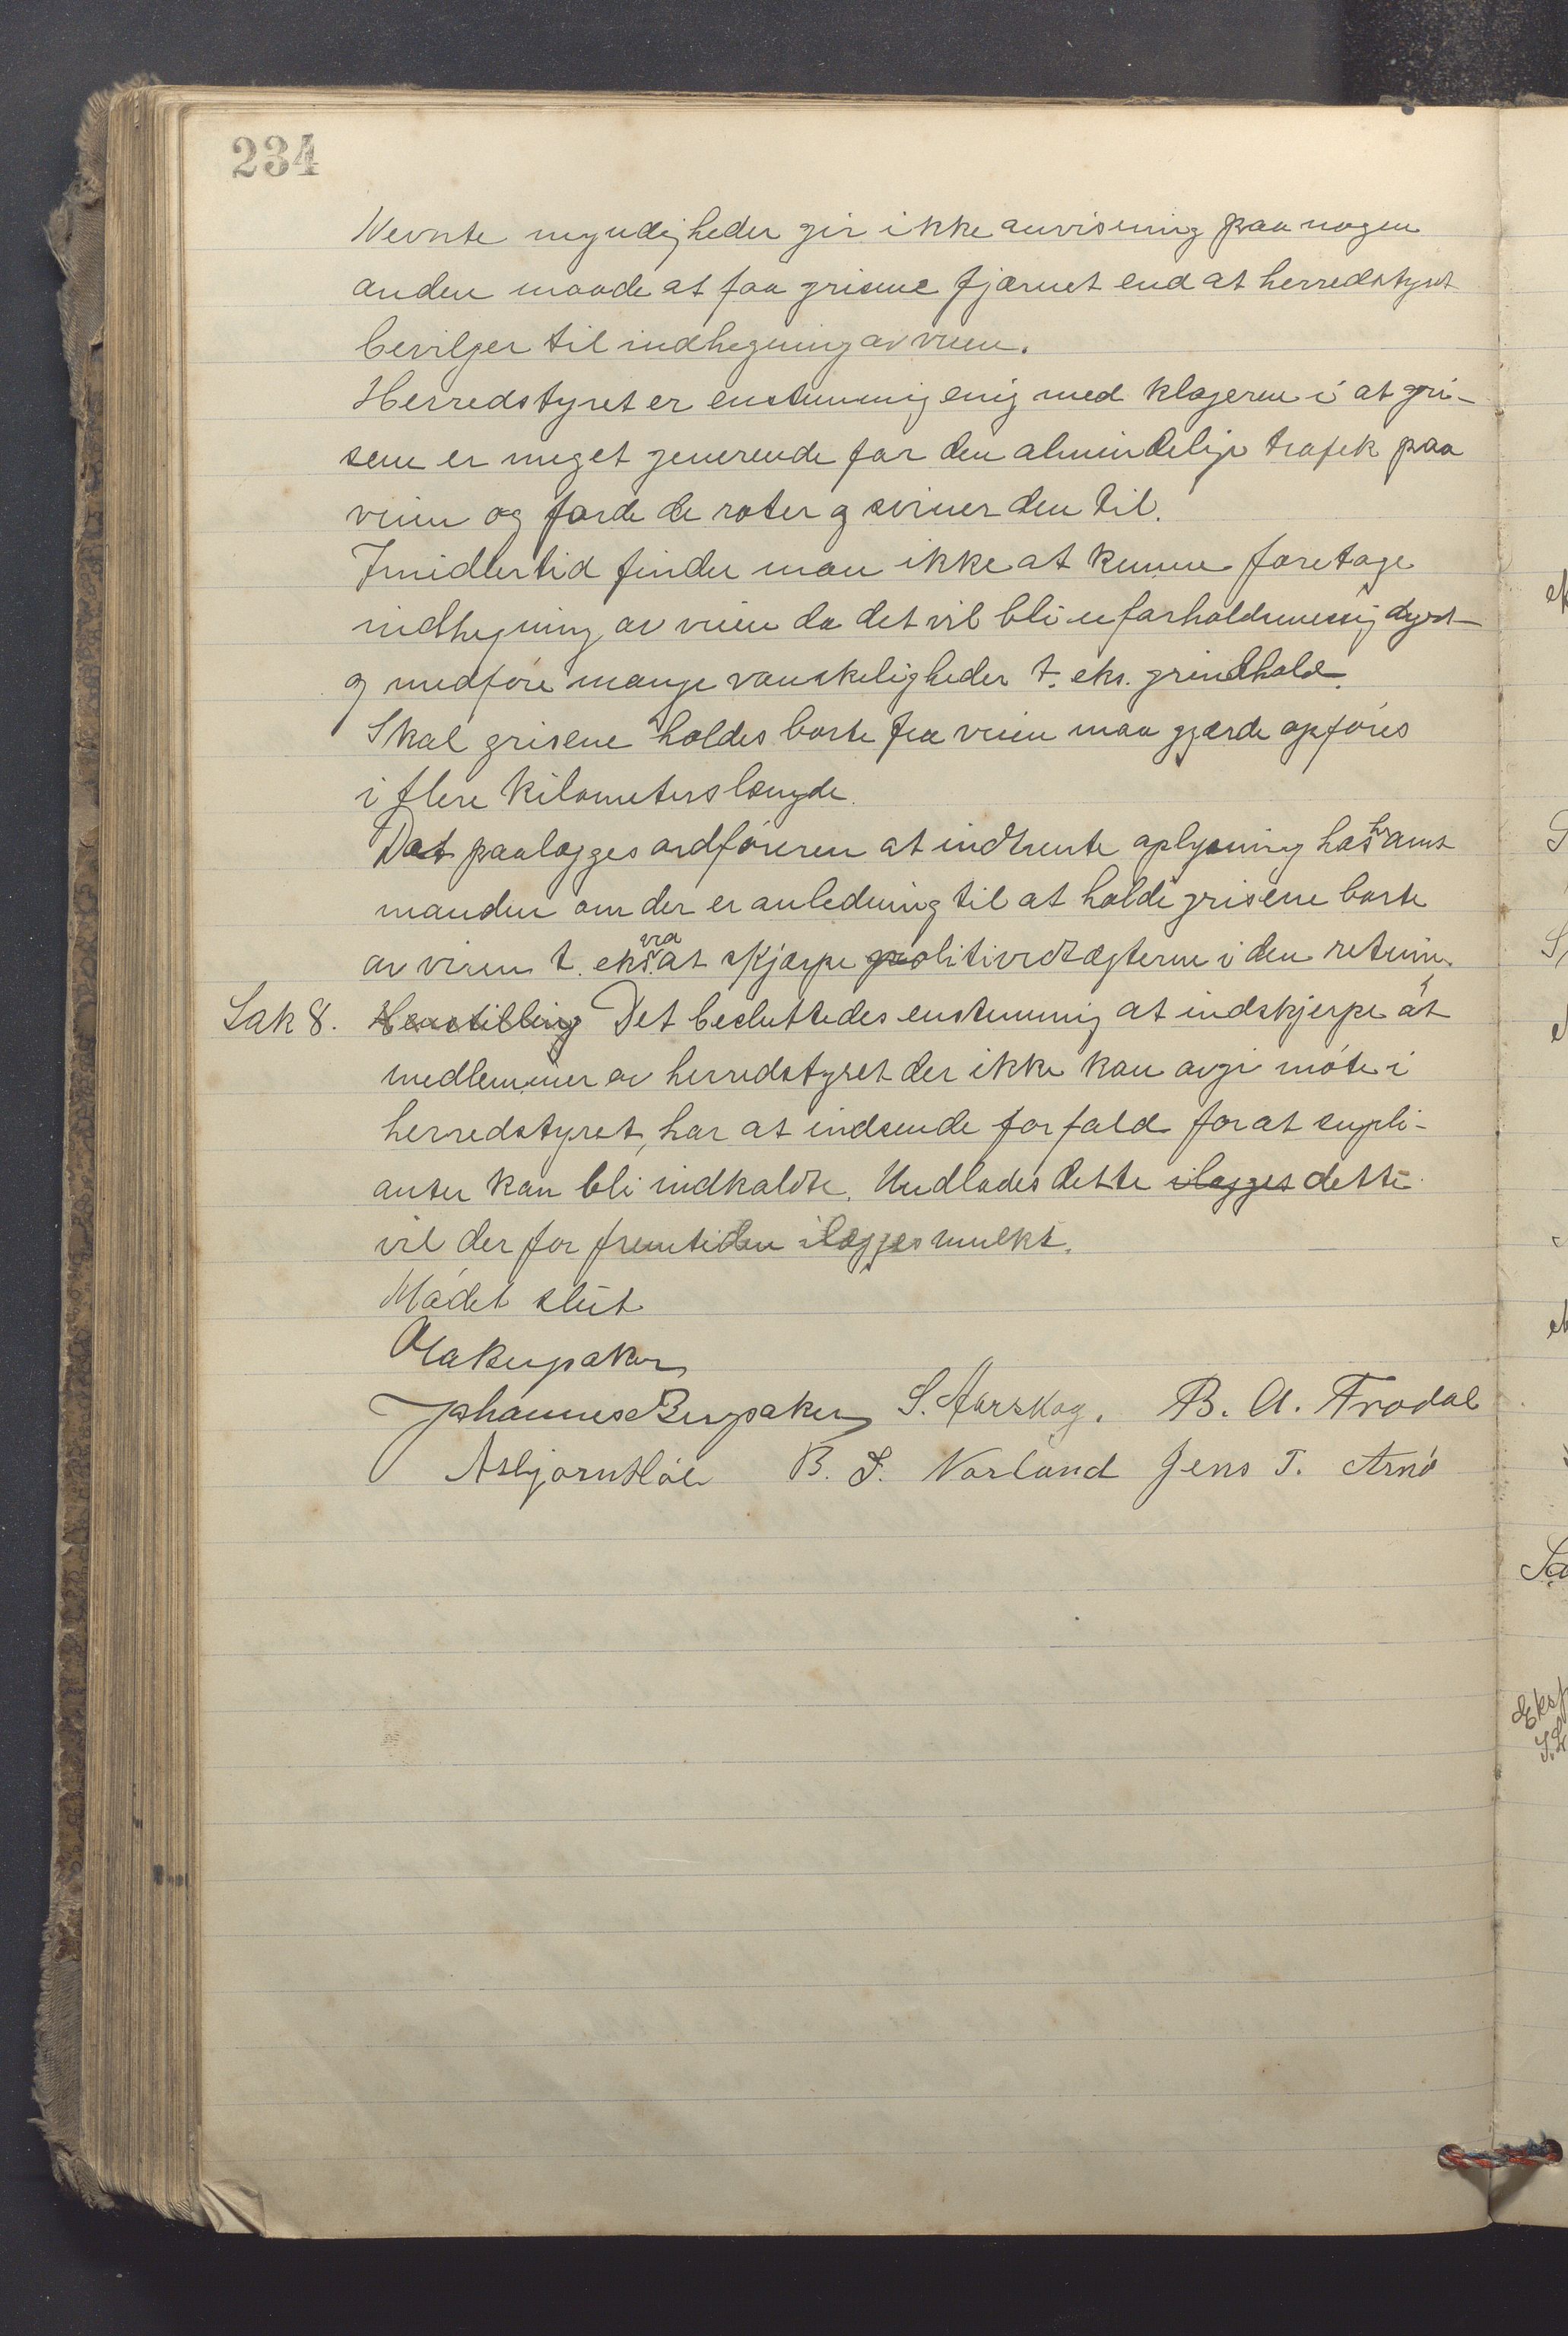 234
Nevnte myndigheder gir ikke anvisning paa nogen
anden maade at faa grisene fjærnet end at herredstyret
bevilger til indhegning av veien.
Herredstyret er enstemmig enig med klageren i at gri-
sene er meget generende for den almindelige trafik paa
veien og fordi de roter og sviner den til.
Imidlertid finder man ikke at kunne foretage
indhegning av veien da det vil bli uforholdsmessig dyrt
og medføre mange vanskeligheder t. eks. grindhold.
Skal grisene holdes borte fra veien maa gjærde opføres
i flere kilometers længde.
Det paalægges ordføreren at indhente oplysning hos hr amt
manden om der er anledning til at holde grisene borte
av veien t. eks. ved at skjærpe politivedtægterne i den retning.
Sak 8. Henstilling Det besluttedes enstemmig at indskjerpe at
medlemmer av herredstyret der ikke kan avgi møte i
herredstyret, har at indsende forfald for at supli-
anter kan bli indkaldte. Undlades dette ilegges dette
vil der for fremtiden ilægges mulkt.
Mødet slut
O Lakupaker
Johannes Bergsaker S. Aarskog. B. A. Frodal
Asbjørn Høle B. S. Norland Jens T. Arnø